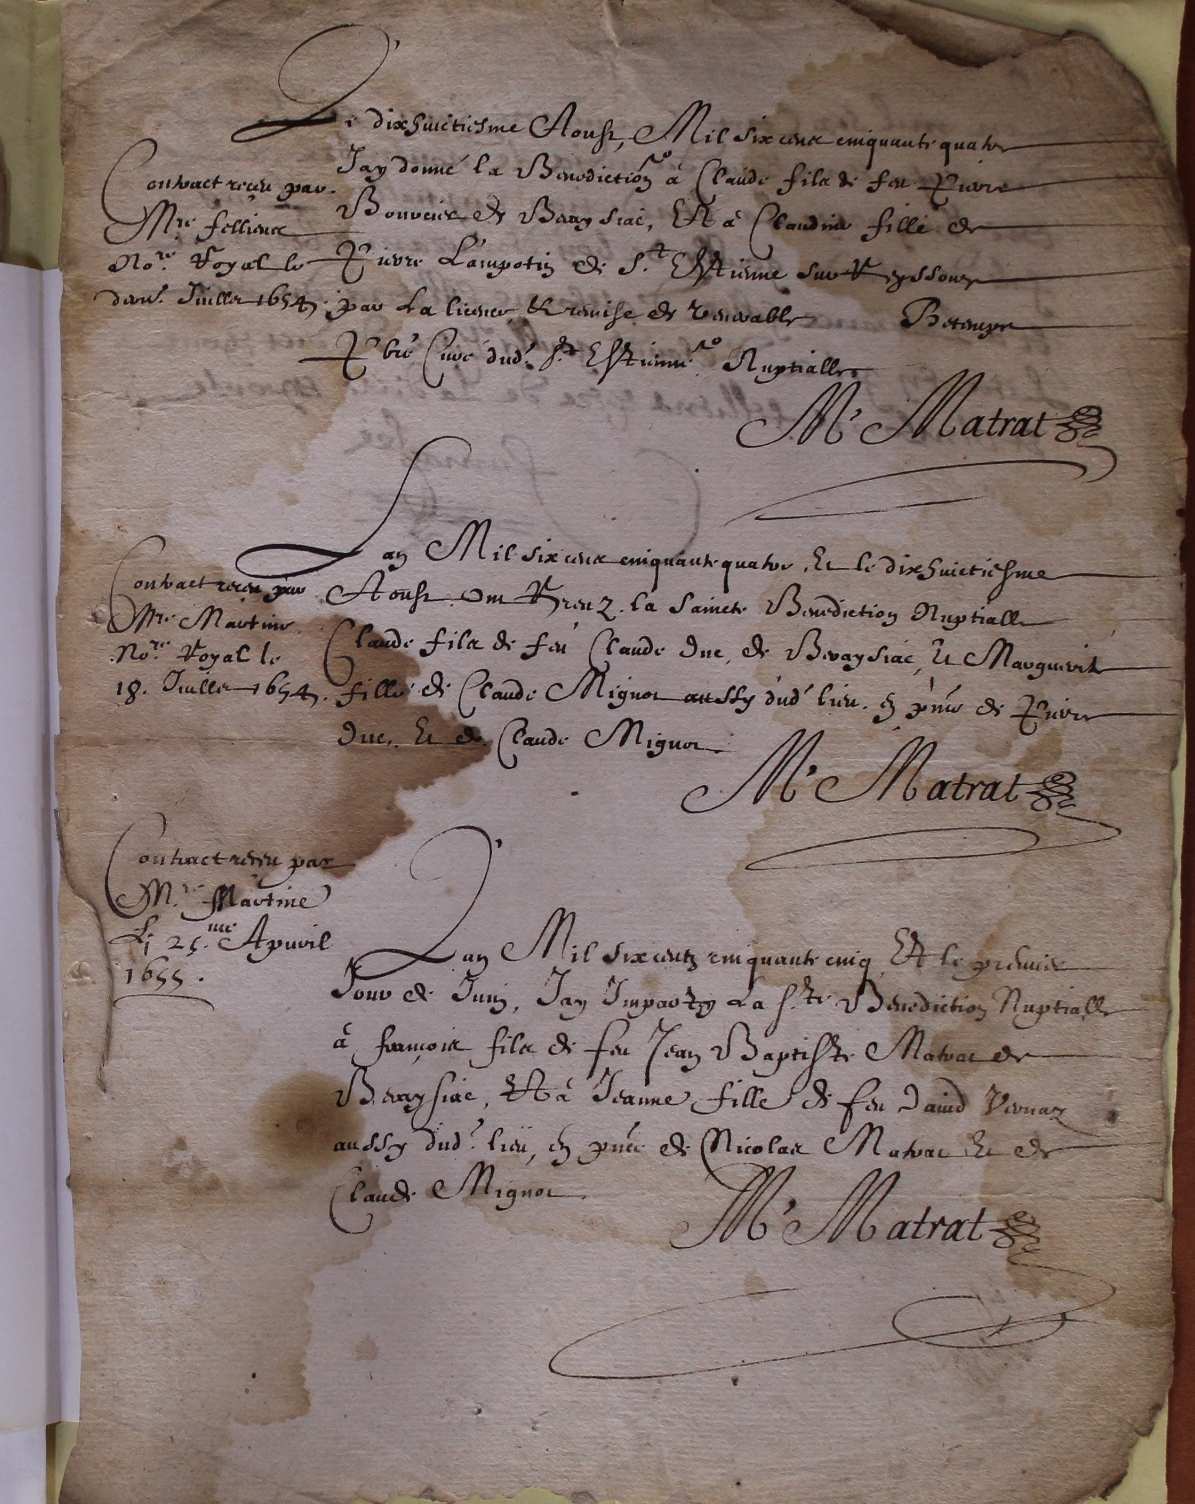 Le dixhuictiesme Aoust, Mil six cent cinquante quatre
Jay donné la Benediction à Claude fils de feu Pierre
Bouvier de Bereysiac, Et à Claudine fille de
Pierre Lampotin de S.t Estienne sur Reyssouze
par La licence & remise de venerable Betemps
Pbre Curé dud. St Estienne, Nuptialle
Contract receu par
Mre
No.re Royal le
Juillet 1654
Mr Matrat
Lan Mil six cent cinquante quatre, Et le dixhuictiesme
Aoust, Ont Receuz la Saincte Benediction Nuptialle
Claude fils de feu Claude Duc, de Bereysiac, Et Marguerite
fille de Claude Mignot aussy dud lieu, en pnce de Pierre
Duc, Et de Claude Mignot
Contract receu par
Mre Martine
No.re Royal le
18. Juillet 1654.
Mr Matrat
Contract receu par
M.re Martine
Le 25.me Apuril
1655.
Lan Mil six centz cinquante cinq, Et le premier
Jour de Juin, Jay Imparty La S.te Benediction Nuptialle
à françois fils de feu Jean Baptiste Matrat de
Bereysiac, Et à Jeanne fille de feu David
aussy dud. lieu, en pnce de Nicolas Matrat Et de
Claude Mignot.
Mr Matrat